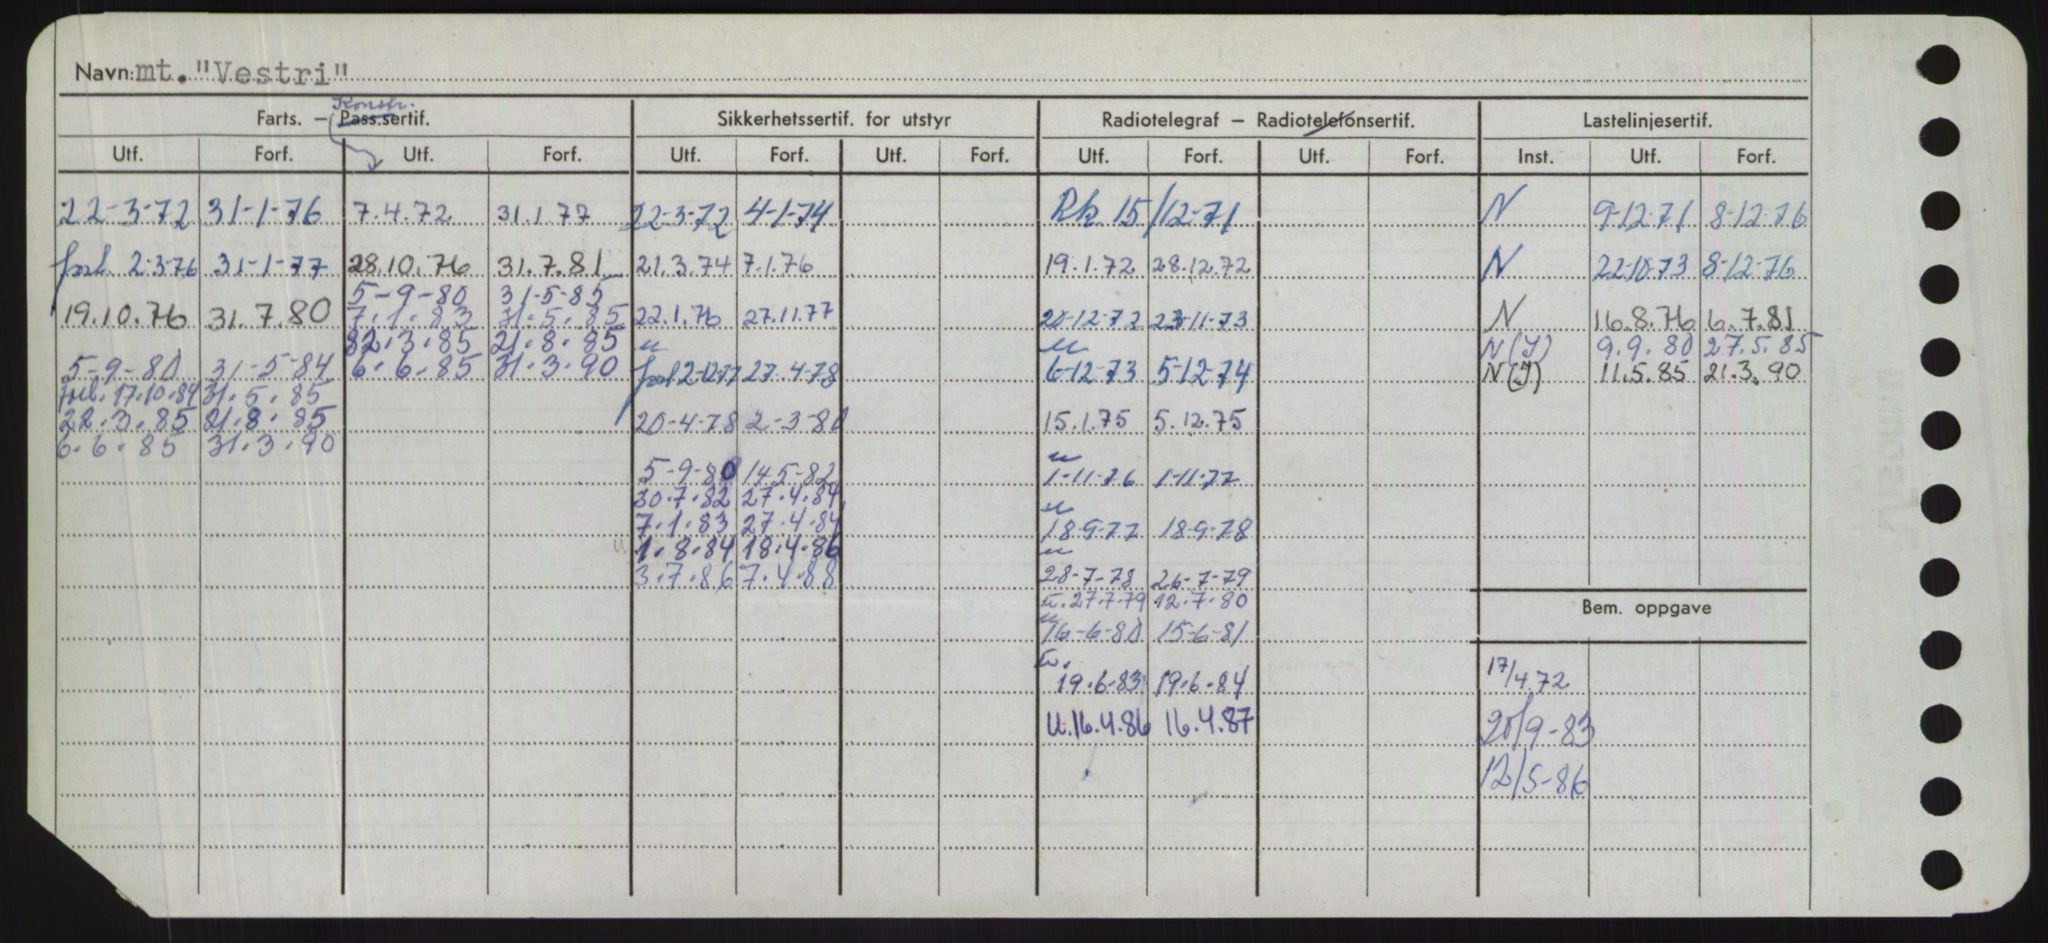 Navn: mt. "Vestri"
Konstr.
Farts. — Pass.sertif. Sikkerhetssertif. for utstyr Radiotelegraf — Radiotelefonsertif. Lastelinjesertif.
Utf. Forf. Utf. Forf. Utf. Forf. Utf. Forf. Utf. Forf. Utf. Forf. Inst. Utf. Forf.
22-3-72 31-1-76 7.4.72 31.1.77 22-3-72 4-1-74 Rk 15/12-71 N 9-12-71 8-12-76
forl 2-3-76 31-1-77 28.10.76 31.7.81 21.3.74 7.1.76 19.1.72 28.12.72 N 22-10-73 8-12-76
5-9-80 31-5-85
19.10.76 31.7.80 7.1.83 31.5.85 22.1.76 27.11.77 20-12-72 23-11-73 N 16.8.76 6.7.81
22.3.85 21.8.85 u u N(I) 9.9.80 27.5.85
5-9-80 31-5-84 6.6.85 31.3.90 forl 2-12-77 27.4-78 6-12-73 5-12-74 N(I) 11.5.85 21.3.90
forl. 17.10.84 31.5.85
22.3.85 21.8.85 20-4-78 2-3-80 15.1.75 5.12.75
6.6.85 31.3.90 u
5-9-80 14.5-82 1-11-76 1-11-77
30.7.82 27.4.84 u
7.1.83 27.4.84 18-9-77 18-9-78
1.8.84 18.4.86 u
3.7.86 7.4.88 28-7-78 26-7-79
u. 27.7.79 12.7.80 Bem. oppgave
u
16-6-80 15-6-81
u.
19.6.83 19.6.84 17/4 72
u. 16.4.86 16.4.87 20/9-83
12/5-86